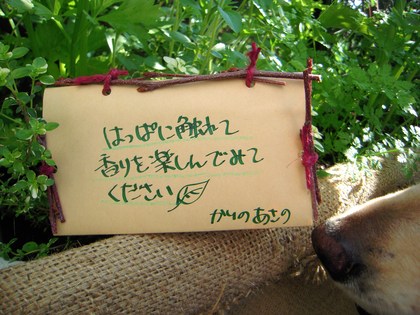 はっぱに触れて
香りを楽しんでみて
ください
かりのあさの